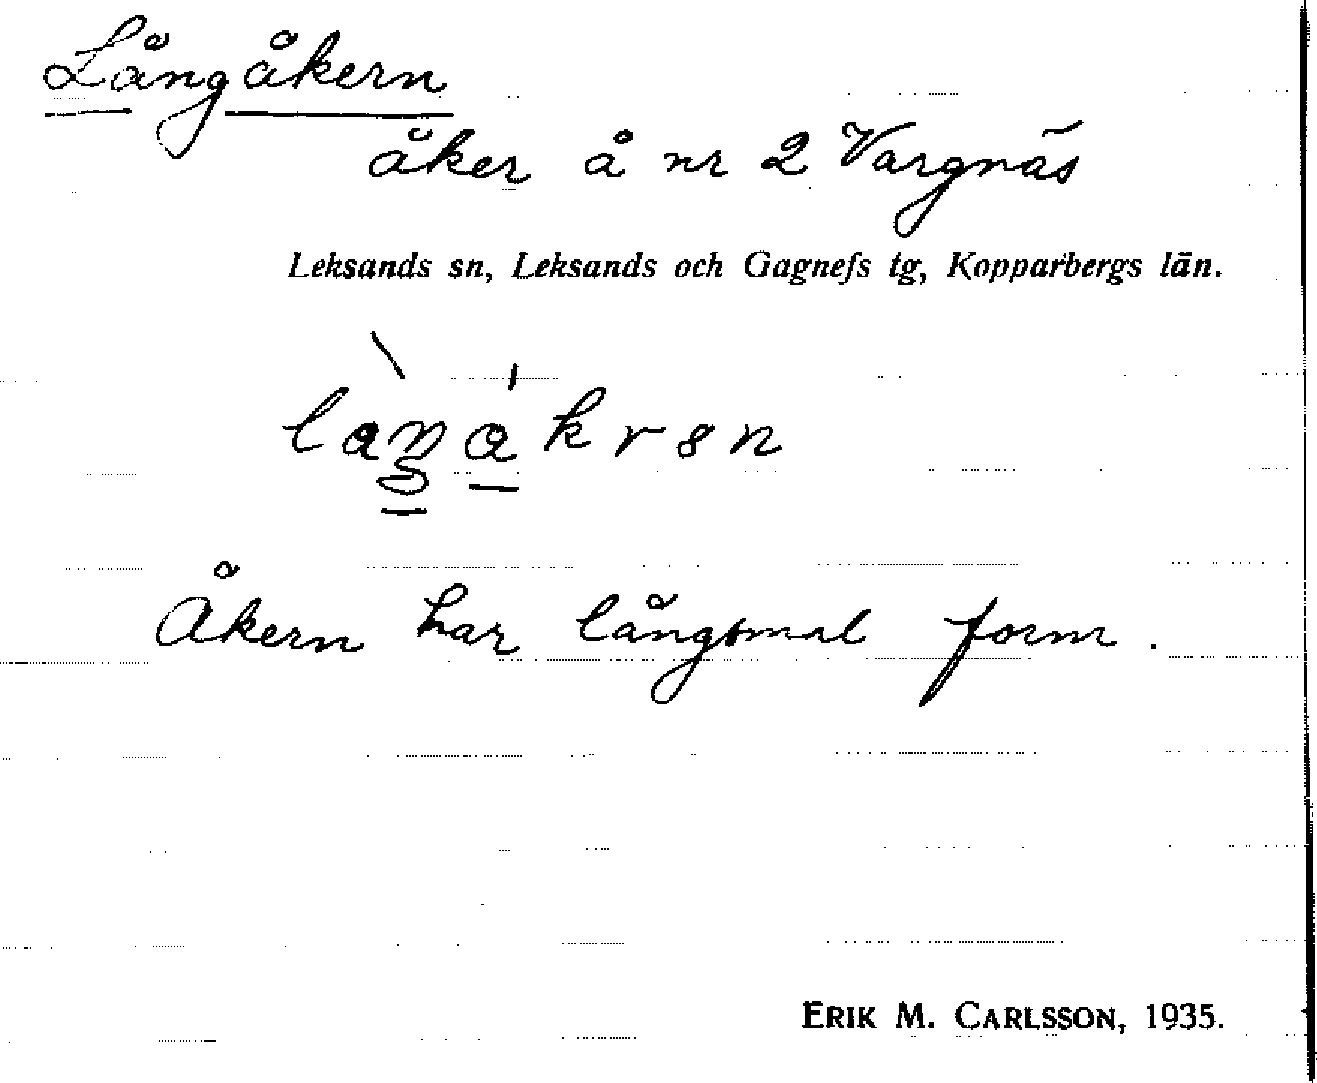 Långåkern
åker å nr 2 Vargnäs
Leksands sn, Leksands och Gagnefs tg, Kopparbergs län.
Åkern har långsmal form.
ERIK M. CARLSSON, 1935.